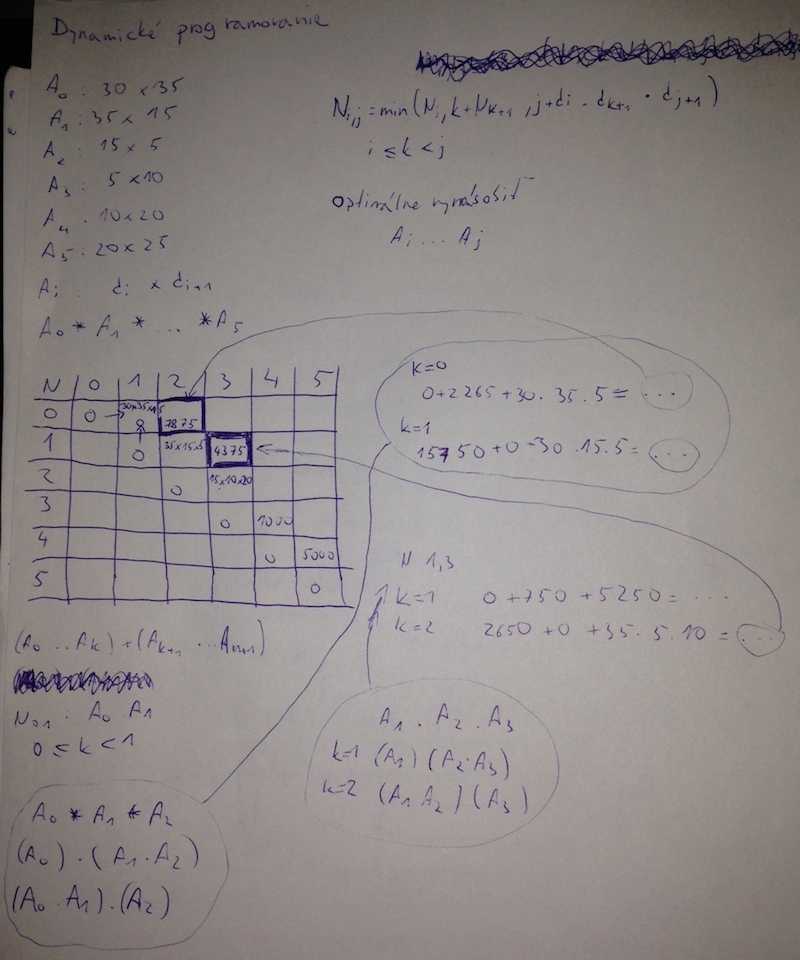 Dynamické programovanie
A₀ : 30 x 35
A₁ : 35 x 15
A₂ : 15 x 5
A₃ : 5 x 10
A₄ . 10 x 20
A₅ : 20 x 25
Aᵢ : dᵢ x dᵢ₊₁
A₀ * A₁ * ... * A₅
Nᵢ,ⱼ = min(Nᵢ,k + Nₖ₊₁,j + dᵢ . dₖ₊₁ . dⱼ₊₁)
i ≤ k < j
Optimálne vynásobiť
Aᵢ ... Aⱼ
N 0 1 2 3 4 5
0 0 30x35x15 7875
1 0 35x15x5 4375
2 0 15x10x20
3 0 1000
4 0 5000
5 0
k=0
0+2265+30.35.5= ...
k=1
15750+0-30.15.5= ...
N 1,3
k=1 0+750+5250= ...
k=2 2650+0+35.5.10 = ...
(A₀ .. Aₖ) + (Aₖ₊₁ ...
N₀,₁ : A₀ A₁
0 ≤ k < 1
A₁ . A₂ . A₃
k=1 (A₁) (A₂.A₃)
k=2 (A₁ A₂) (A₃)
A₀ * A₁ * A₂
(A₀) . (A₁.A₂)
(A₀ . A₁) . (A₂)